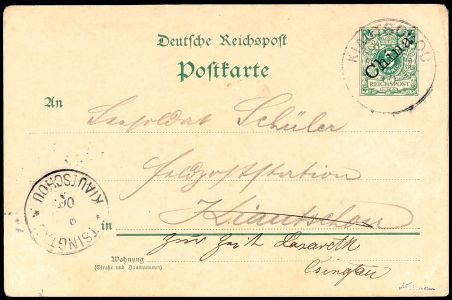 Deutsche Reichspost
Postkarte
KIAUTSCHOU
China
5
REICHSPOST
An
Soldat Schüler
Feldpoststation
in Kiautschou
zur Zeit Lazareth
Tsingtau
Wohnung
(Straße und Hausnummer)
TSINGTAU
KIAUTSCHOU